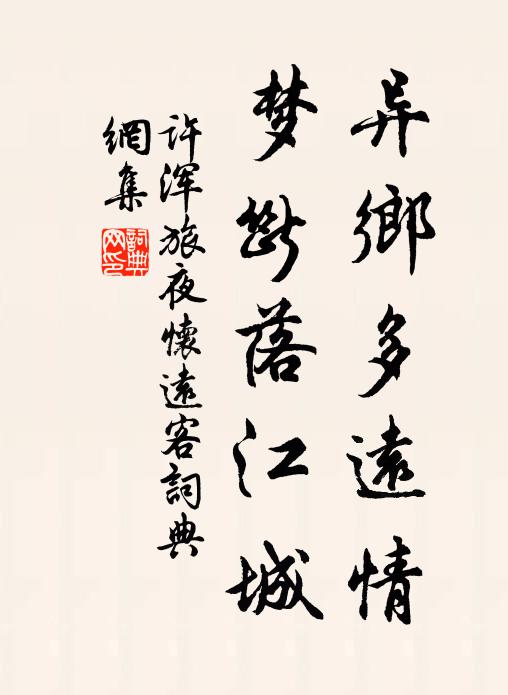 异鄉多遠情
梦斷落江城
许浑旅夜懷遠客詞典
網集
詞典
网印